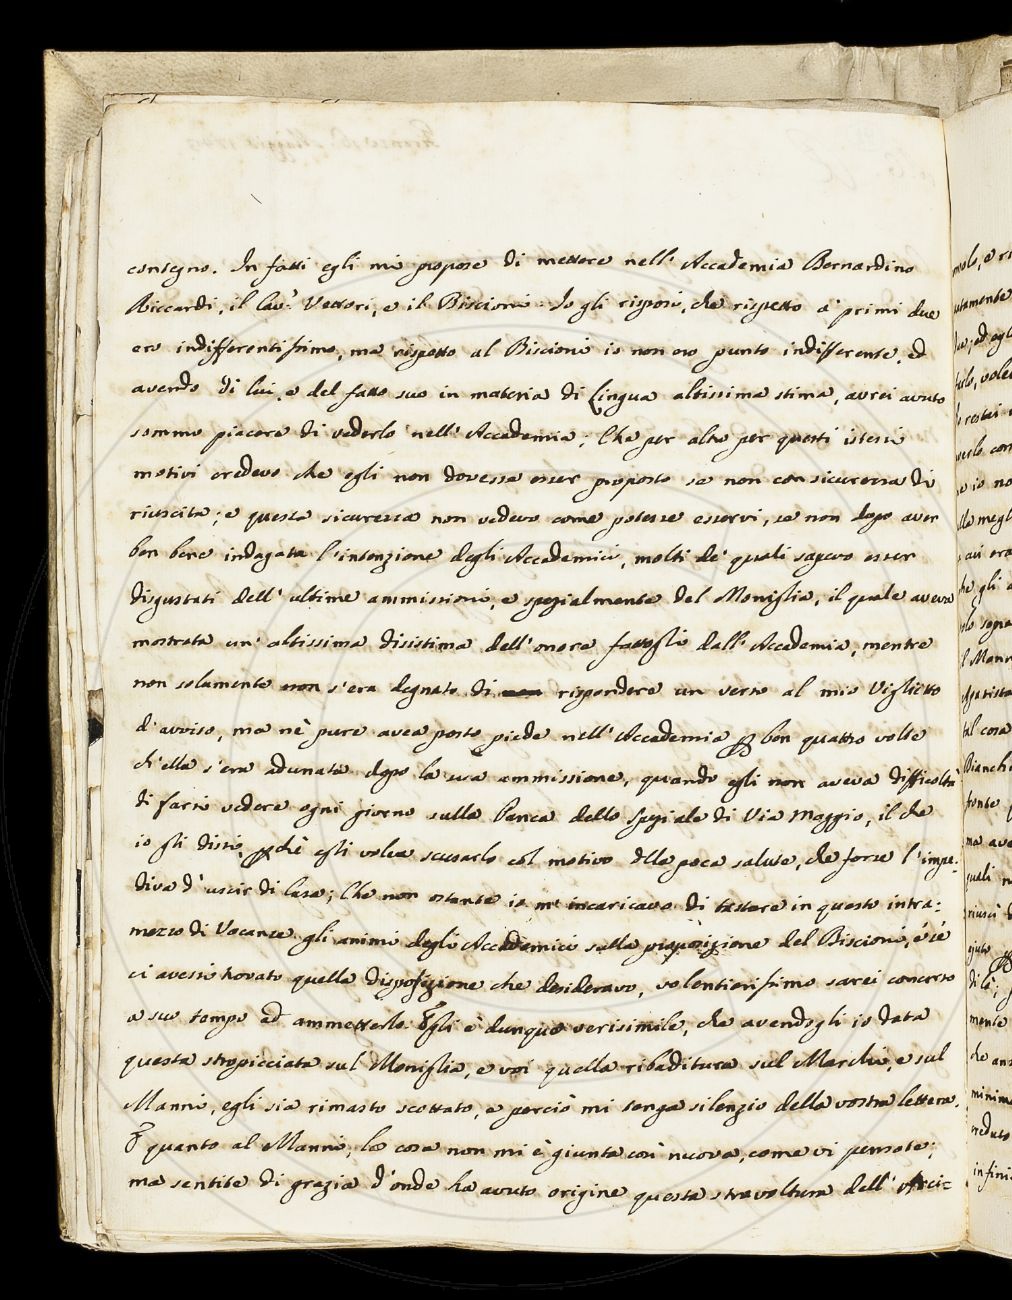 consegno. In fatti egli mi propose di mettere nell' Accademia Bernardino
Riccardi, il Cav.r Vettori, e il Biscioni: Io gli risposi, che rispetto a' primi due
ero indifferentissimo, ma rispetto al Biscioni io non ero punto indifferente, ed
avendo di lui, e del fatto suo in materia di Lingua altissima stima, avrei avuto
sommo piacere di vederlo nell' Accademia; Che per altro per questi istessi
motivi credevo che egli non dovesse esser proposto se non con sicurezza di
riuscita; e questa sicurezza non vedevo come potesse esservi, se non dopo aver
ben bene indagata l'intenzione degli Accademici, molti de' quali sapevo esser
disgustati dell' ultime ammissioni, e spezialmente del Moniglia, il quale aveva
mostrata un' altissima disistima dell' onore fattogli dall' Accademia, mentre
non solamente non s'era degnato di rispondere un verso al mio Viglietto
d'avviso, ma nè pure avea posto piede nell' Accademia p ben quattro volte
ch'ella s'era adunata dopo la sua ammissione, quando egli non aveva difficoltà
di farsi vedere ogni giorno sulla Panca dello Speziale di Via Maggio, il che
io gli dissi, pchè egli volea scusarlo col motivo dlla poca salute, che forse l'impe-
diva d'uscir di Casa; Che non ostante io m' incaricavo di tastare in questo intra-
mezzo di Vacanze gli animi degli Accademici sulla proposizione del Biscioni, e se
ci avessi trovato quella disposizione che desideravo, volentierissimo sarei concorso
a suo tempo ad ammetterlo. Egli è dunque verisimile, che avendogli io data
questa stropicciata sul Moniglia, e voi quella ribaditura sul Marchi, e sul
Manni, egli sia rimasto scottato, e perciò mi tenga silenzio della vostra lettera.
E quanto al Manni, la cosa non mi è giunta così nuova, come vi pensate;
ma sentite di grazia d'onde ha avuto origine questa stravoltura dell' Arci-